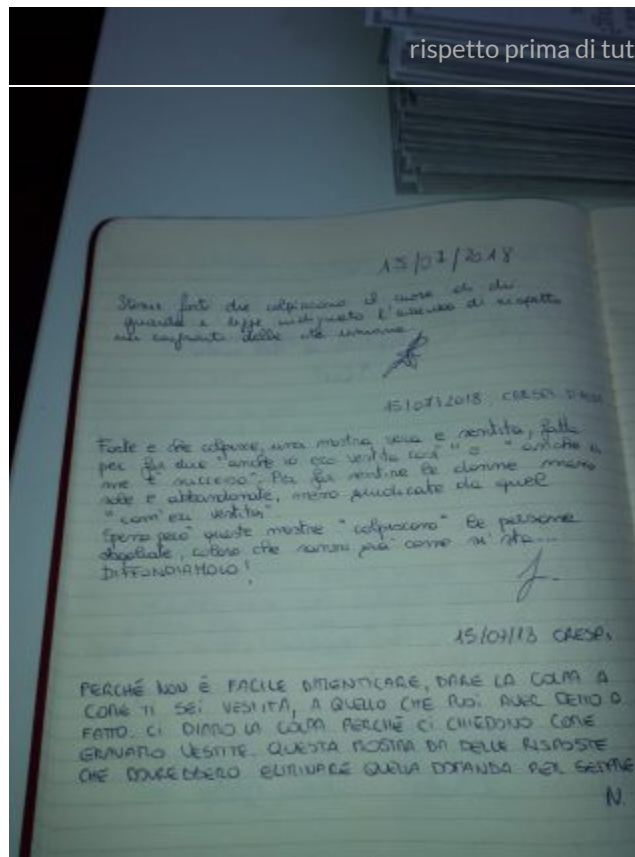 rispetto prima di tut
15/07/2018
Storie forti che colpiscono il cuore di chi
guarda e legge indignato l'assenza di rispetto
nei confronti delle vite umane
15/07/2018 CRESPI D'ADDA
Forte e che colpisce, una mostra vera e sentita, fatta
per far dire "anche io ero vestita così" o "anche a
me è successo". Per far sentire le donne meno
sole e abbandonate, meno giudicate da quel
"com'eri vestita"
Spero però queste mostre "colpiscano" le persone
sbagliate, coloro che sanno già come si sta...
DIFFONDIAMOLO!
15/07/18 CRESPI
PERCHÉ NON È FACILE DIMENTICARE, DARE LA COLPA A
COME TI SEI VESTITA, A QUELLO CHE PUOI AVER DETTO O
FATTO. CI DIAMO LA COLPA PERCHÉ CI CHIEDONO COME
ERAVAMO VESTITE. QUESTA MOSTRA DA DELLE RISPOSTE
CHE DOVREBBERO ELIMINARE QUELLA DOMANDA PER SEMPRE
N.